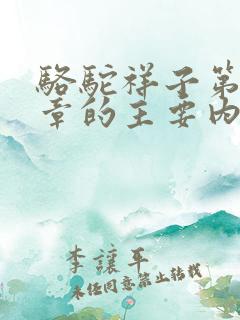 駱駝祥子第
章的主要內
李讓平
未经同意禁止转载